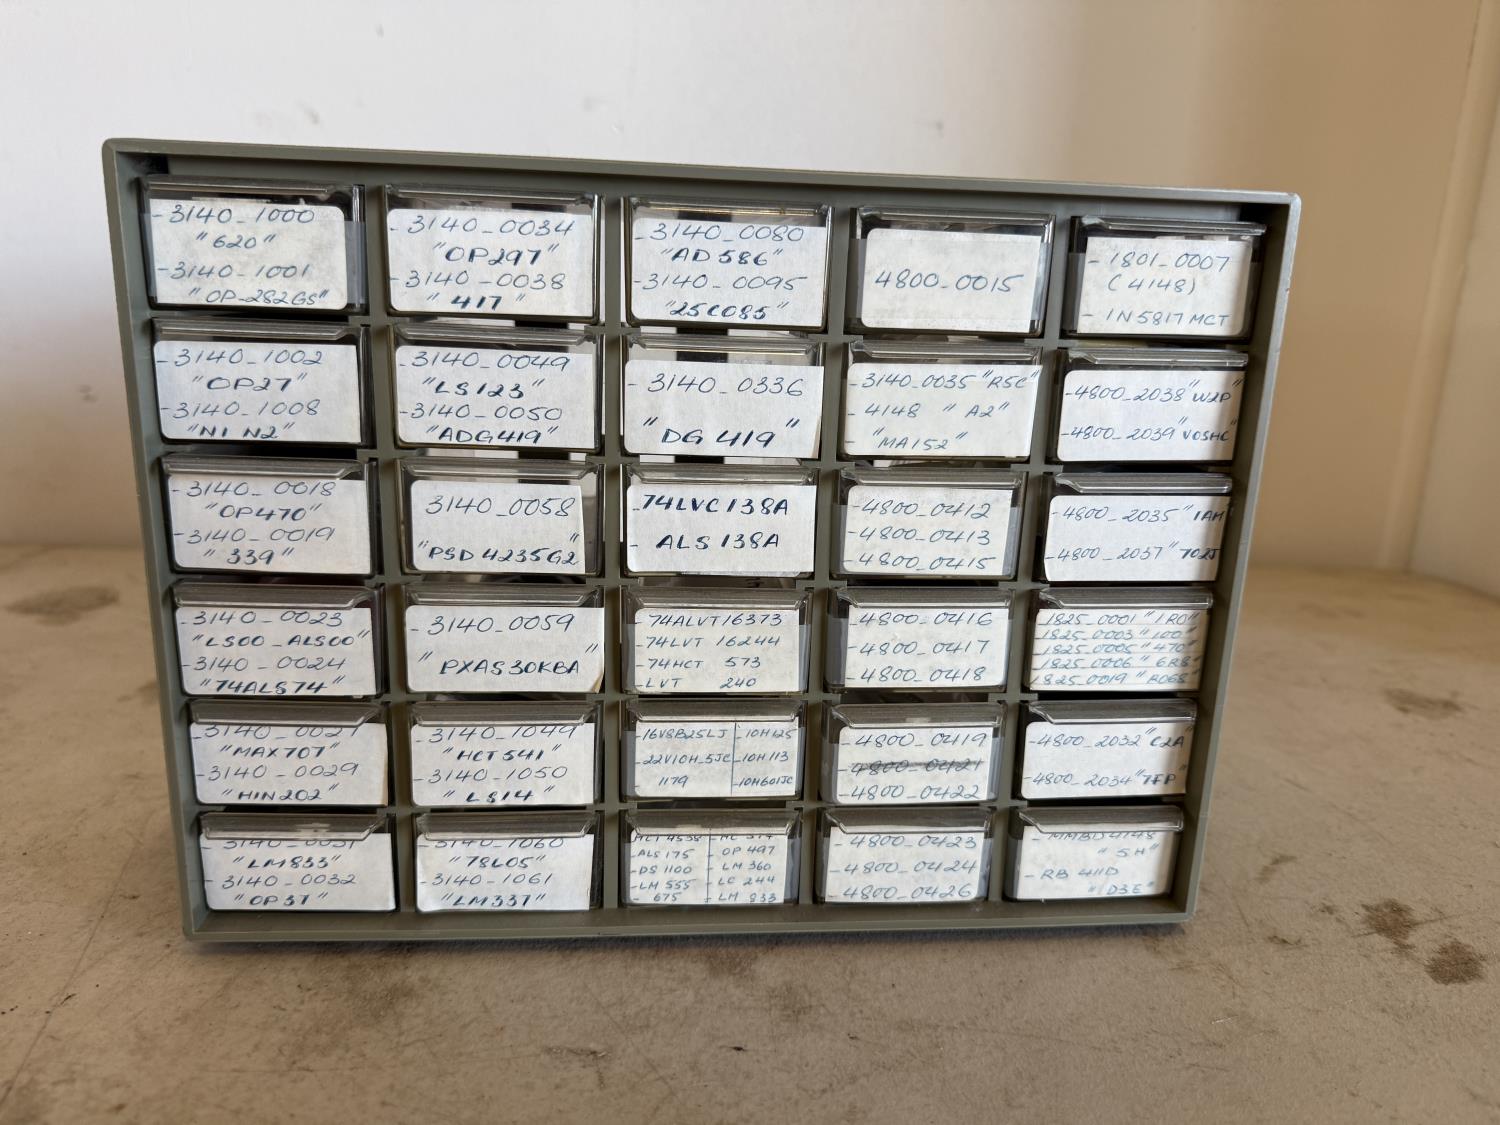 -3140-1000
"620"
-3140-1001
"OP-282GS"
-3140-0034
"OP297"
-3140-0038
"417"
-3140-0080
"AD586"
-3140-0095
"25C085"
4800-0015
-1801-0007
(4148)
-1N5817MCT
-3140-1002
"OP27"
-3140-1008
"N1 N2"
-3140-0049
"LS123"
-3140-0050
"ADG419"
-3140-0336
"DG 419"
-3140-0035 "R5C"
-4148 "A2"
- "MA152"
-4800-2038 "W2P"
-4800-2039 "VOSHC"
-3140-0018
"OP470"
-3140-0019
"339"
3140-0058
"PSD4235G2"
-74LVC138A
- ALS138A
-4800-0412
-4800-0413
-4800-0415
-4800-2035 "1AM"
-4800-2037 "702J
-3140-0023
"LS00-ALS00"
-3140-0024
"74ALS74"
-3140-0059
"PXAS30KBA"
-74ALVT16373
-74LVT 16244
-74HCT 573
-LVT 240
-4800-0416
-4800-0417
-4800-0418
1825-0001 "1R0"
1825-0003 "100"
1825-0005 "470"
1825-0006 "6R8"
1825-0019
-3140-0027
"MAX707"
-3140-0029
"HIN202"
-3140-1049
"HCT541"
-3140-1050
"LS14"
-16V8B25LJ
-22V10H-5JC
1179
-10H125
-10H113
-10H601JC
-4800-0419
-4800-0421
-4800-0422
-4800-2032 "C2A"
-4800-2034 "7FP"
-3140-0031
"LM833"
-3140-0032
"OP37"
-3140-1060
"78L05"
-3140-1061
"LM337"
-HCT4538
-ALS175
-DS1100
-LM 555
- 675
- OP 497
- LM 360
- LC 244
- LM 833
-4800-0423
-4800-0424
-4800-0426
-MMBD4148
"5H"
-RB 411D
"D3E"